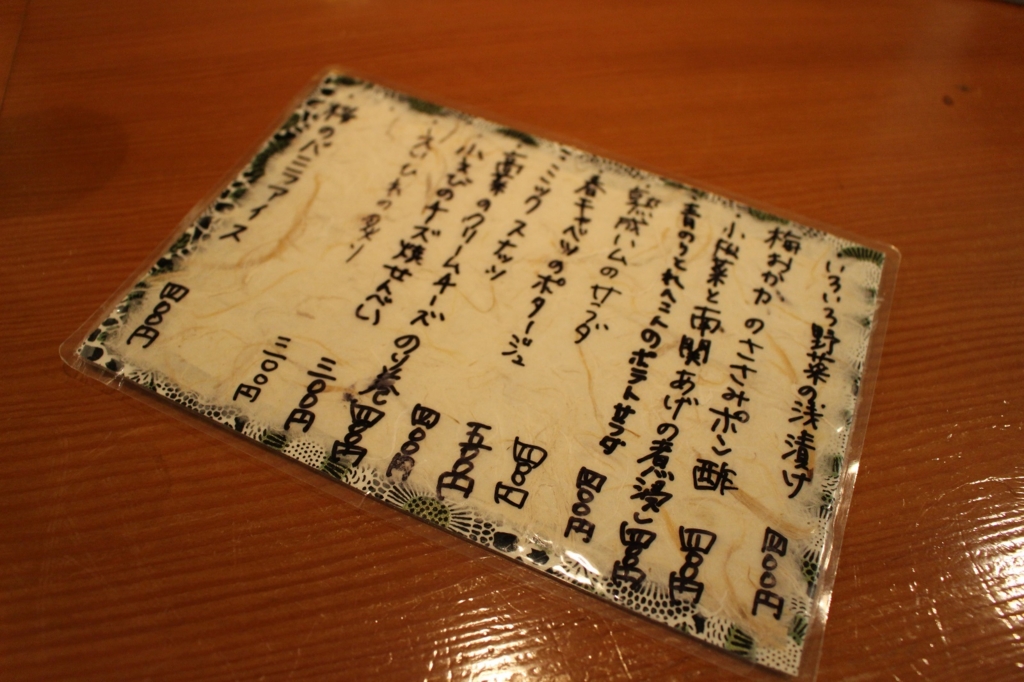 いろいろ野菜の浅漬け 四〇〇円
梅おかかのささみポン酢 四〇〇円
小松菜と南関あげの煮浸し 四〇〇円
青のりとれんこんのポテトサラダ 四〇〇円
熟成ハムのサラダ 四〇〇円
春キャベツのポタージュ 五〇〇円
ミックスナッツ 四〇〇円
高菜のクリームチーズのり巻 四〇〇円
小えびのチーズ焼せんべい 三〇〇円
えいひれの炙り 三〇〇円
桜のバニラアイス 四〇〇円